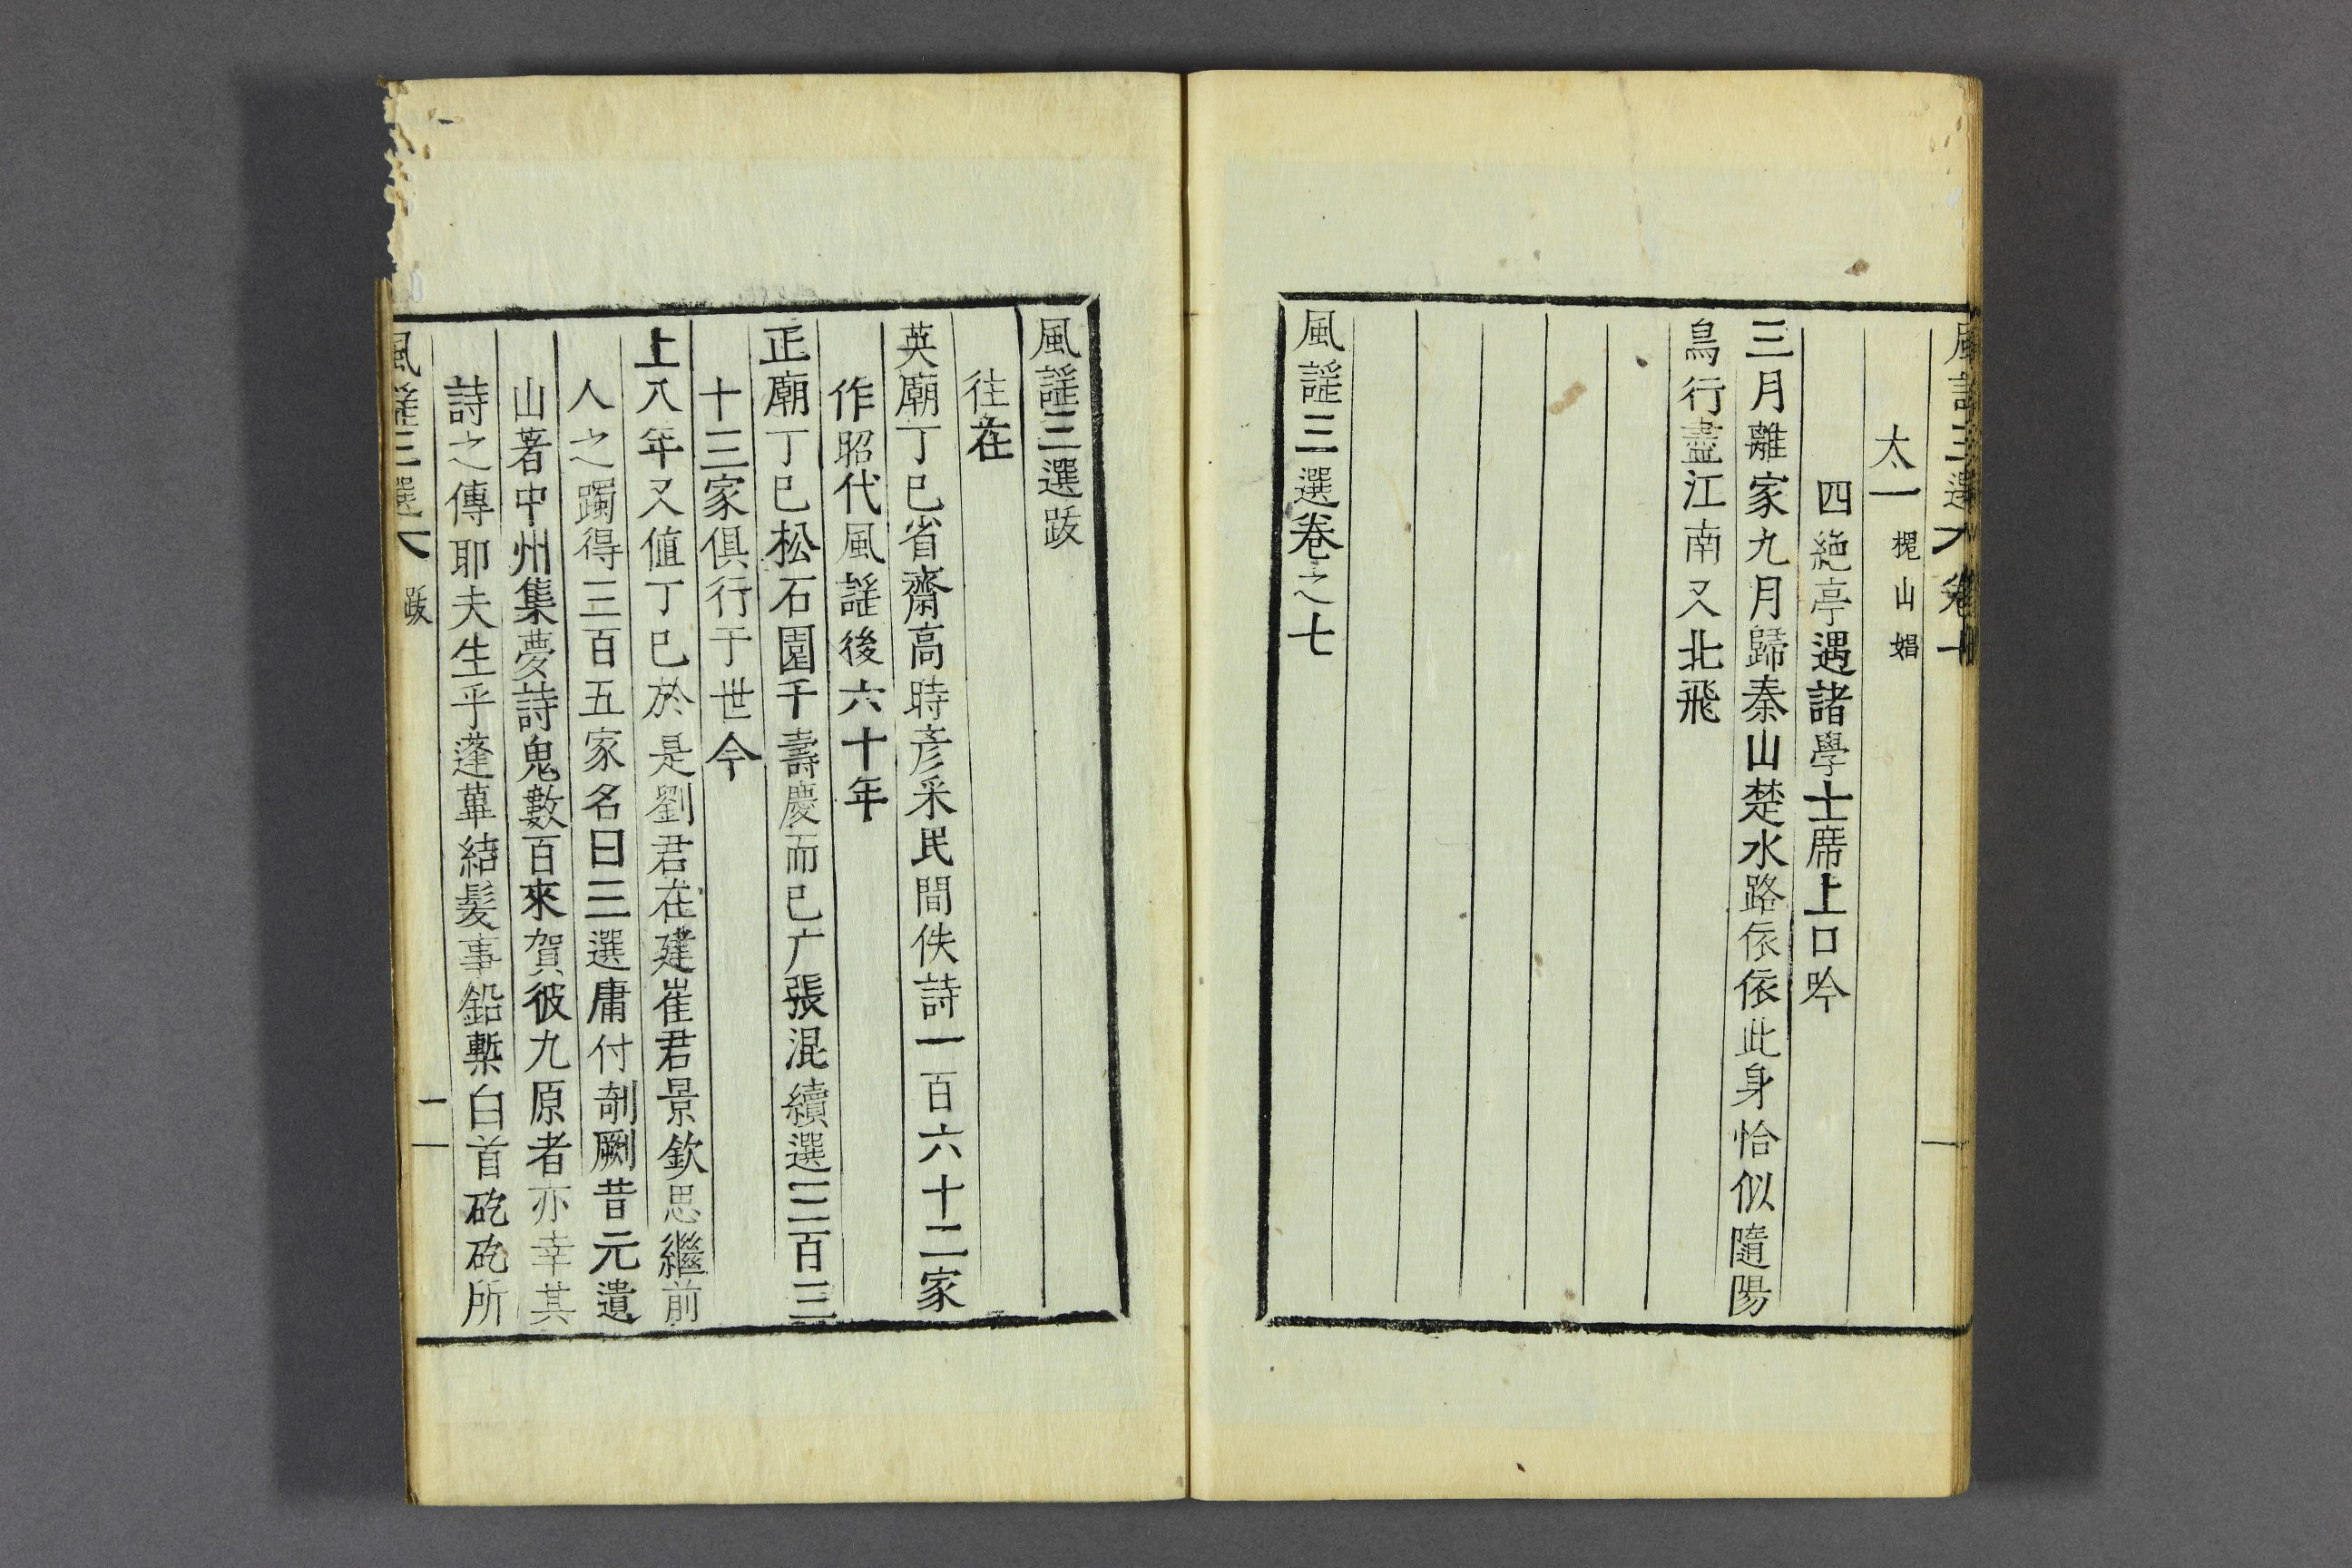 太一 槐山娼
四絶亭遇諸學士席上口吟
三月離家九月歸秦山楚水路依依此身恰似隨陽
鳥行盡江南又北飛
風謠三選卷之七
風謠三選跋
往在
英廟丁巳省齋高時彦采民間佚詩一百六十二家
作昭代風謠後六十年
正廟丁巳松石園千壽慶而已广張混續選三百三
十三家俱行于世今
上八年又值丁巳於是劉君在建崔君景欽思繼前
人之躅得三百五家名曰三選庸付剞劂昔元遺
山著中州集夢詩鬼數百來賀彼九原者亦幸其
詩之傳耶夫生乎蓬蓽結髮事鉛槧白首矻矻所
風謠三選 跋 一